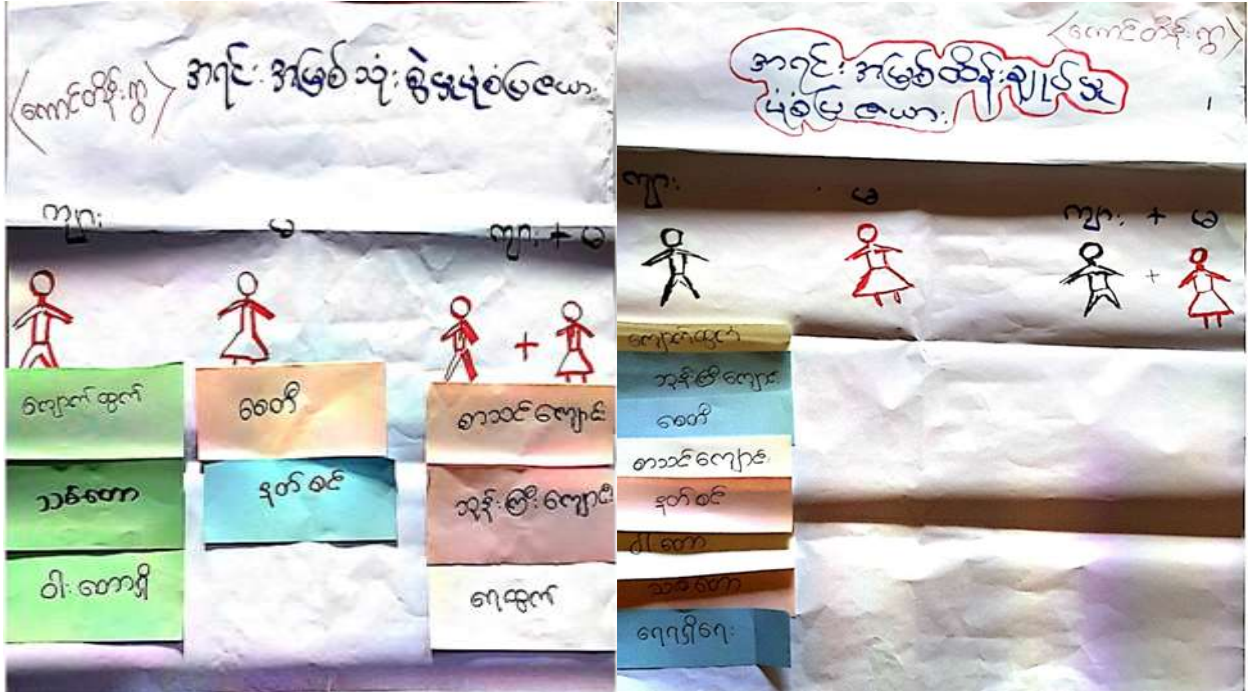 <ကောင်တိန်းကွာ>
အရင်းအမြစ်သုံးစွဲမှုပုံစံပြဇယား
ကျား
မ
ကျား + မ
+
ကျောက်ထွက်
သစ်တော
ဝါးတောရှိ
စေတီ
နတ်စင်
စာသင်ကျောင်း
ဘုန်းကြီးကျောင်း
ရေထွက်
<ကောင်တိန်းကွာ>
အရင်းအမြစ်ထိန်းချုပ်မှု
ပုံစံပြဇယား
ကျား
မ
ကျား + မ
+
ကျောက်ထွက်
ဘုန်းကြီးကျောင်း
စေတီ
စာသင်ကျောင်း
နတ်စင်
ဝါးတော
သစ်တော
ရေရရှိရေး